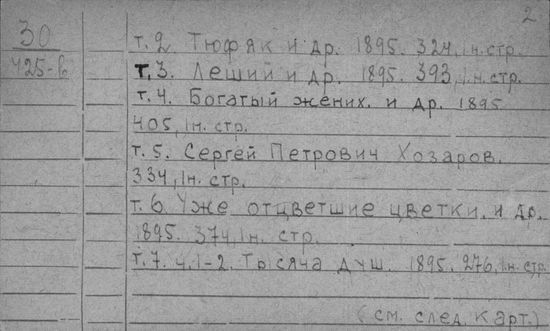 2
30
425-б
т.2. Тюфяк и др. 1895. 324, 1н.стр.
т.3. Леший и др. 1895. 393, 1н.стр.
т.4. Богатый жених. и др. 1895
405, 1н. стр.
т.5. Сергей Петрович Хозаров.
334, 1н. стр.
т.6 Уже отцветшие цветки. и др.
1895. 374, 1н. стр.
т.7. ч.1-2. Тысяча душ. 1895. 276, 1н. стр.
(см. след. карт.)